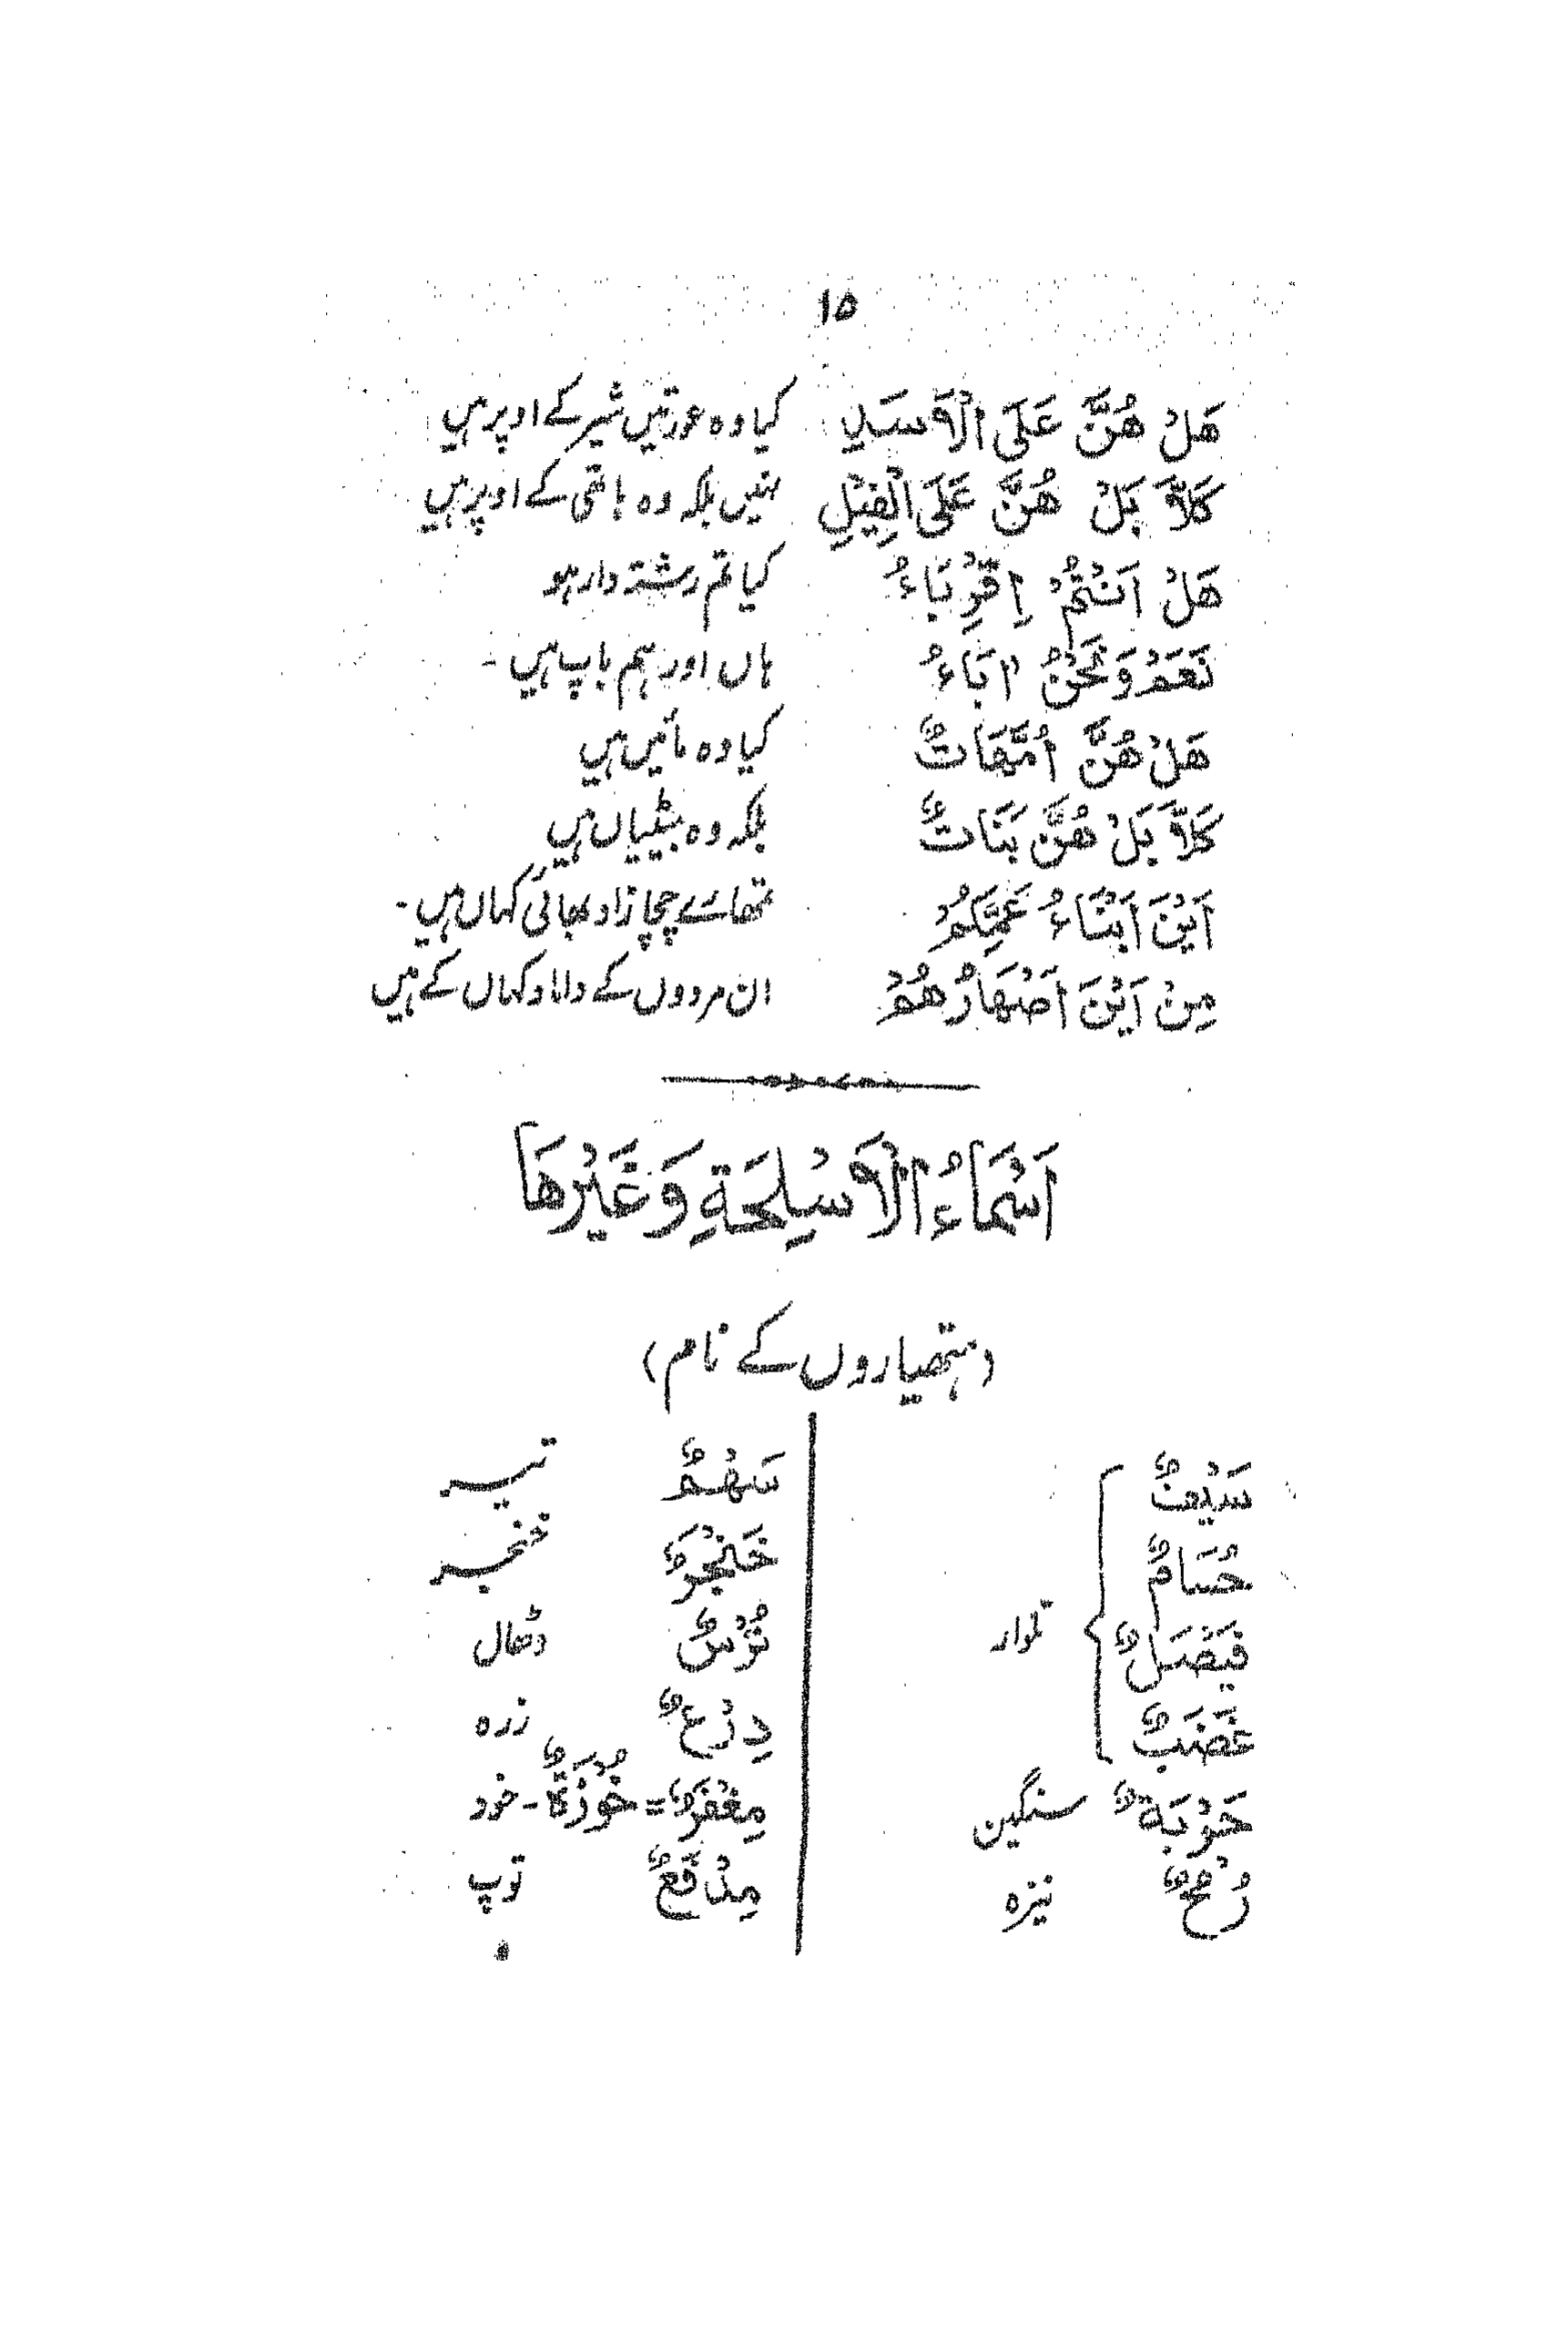 ۱۵
هَلْ هُنَّ عَلَى الْاَسَدِ کیا وہ عورتیں شیر کے اوپر ہیں
كَلَّا بَلْ هُنَّ عَلَى الْفِيْلِ نہیں بلکہ وہ ہاتھی کے اوپر ہیں
هَلْ اَنْتُمْ اِقْرِبَاءُ کیا تم رشتہ دار ہو
نَعَمْ وَنَحْنُ اٰبَاءُ ہاں اور ہم باپ ہیں -
هَلْ هُنَّ اُمَّهَاتٌ کیا وہ مائیں ہیں
كَلَّا بَلْ هُنَّ بَنَاتٌ بلکہ وہ بیٹیاں ہیں
اَيْنَ اَبْنَاءُ عَمِّكُمْ تمھارے چچا زاد بھائی کہاں ہیں -
مِنْ اَيْنَ اَصْهَارُهُمْ ان مردوں کے داماد کہاں کے ہیں
اَسْمَاءُ الْاَسْلِحَةِ وَغَيْرِهَا
(ہتھیاروں کے نام)
سَيْفٌ
حُسَامٌ
فَيْصَلٌ
غَضَبٌ
تلوار
حَرْبَةٌ سنگین
رُمْحٌ نیزہ
سَهْمٌ تیر
خَنْجَرٌ خنجر
تُرْسٌ ڈھال
دِرْعٌ زرہ
مِغْفَرٌ = خُوْذَةٌ - خود
مِدْفَعٌ توپ